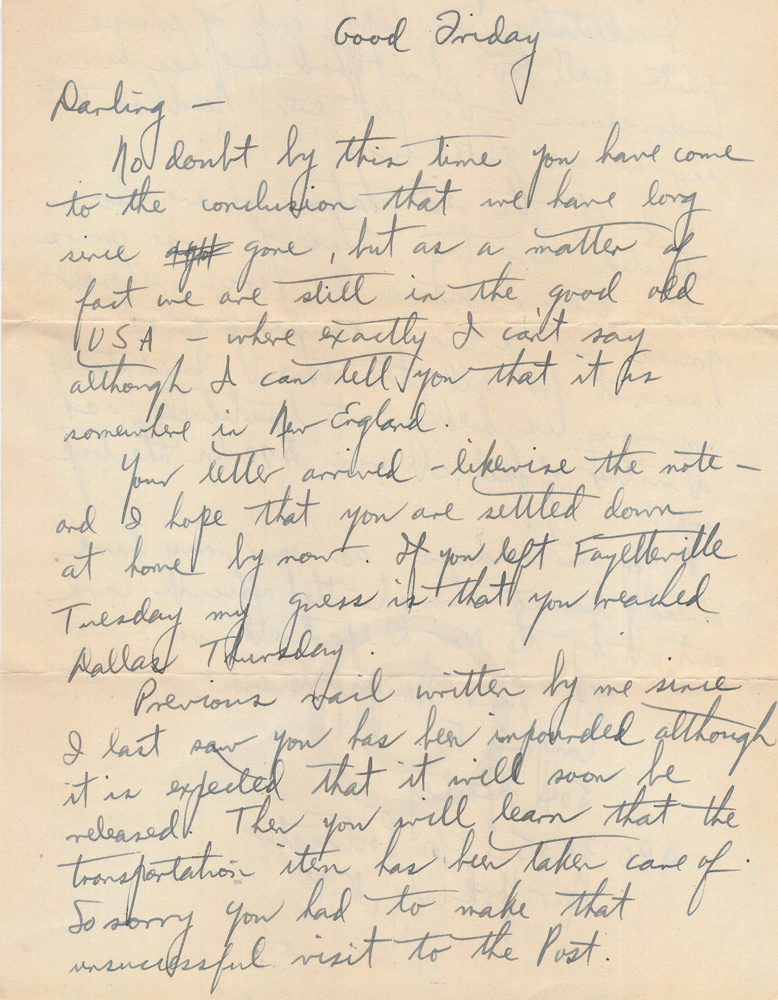 Good Friday
Darling —
No doubt by this time you have come
to the conclusion that we have long
since gone, but as a matter of
fact we are still in the good old
USA - where exactly I can't say
although I can tell you that it is
somewhere in New England.
Your letter arrived - likewise the note -
and I hope that you are settled down
at home by now. If you left Fayetteville
Tuesday my guess is that you reached
Dallas Thursday.
Previous mail written by me since
I last saw you has been impounded although
it is expected that it will soon be
released. Then you will learn that the
transportation item has been taken care of.
So sorry you had to make that
unsuccessful visit to the Post.